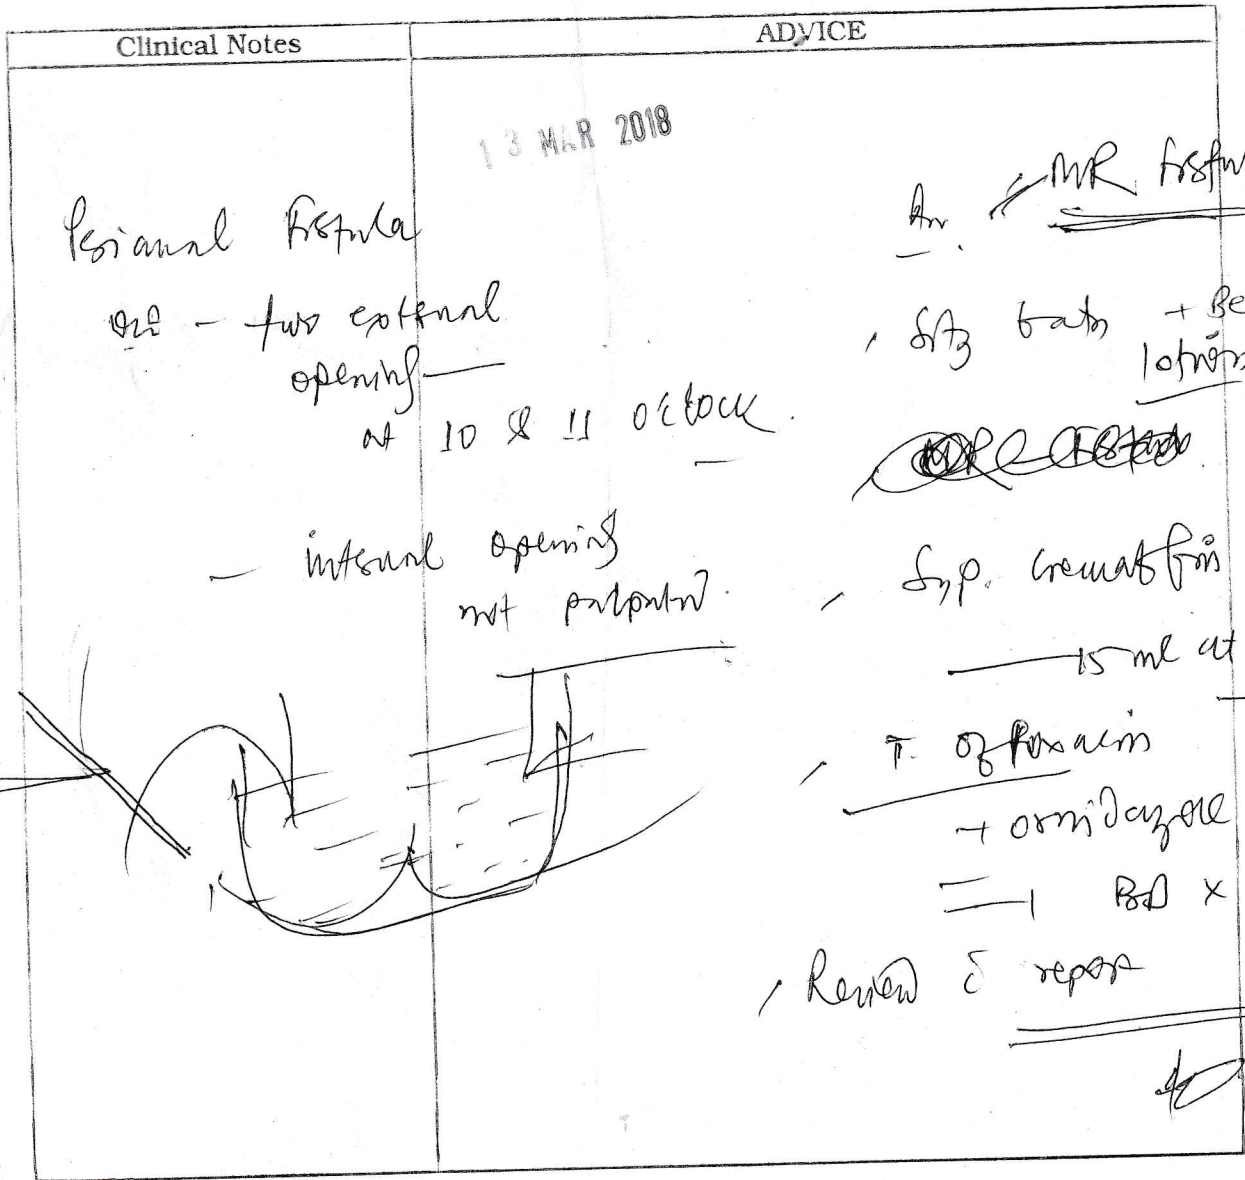 Clinical Notes
ADVICE
13 MAR 2018
Perianal Fistula
- two external
opening
at 10 & 11 O'clock.
- internal opening
not palpated.
Adv. MR Fistu
, Sitz bath + Be
lotion
, Syp. Cremaffin
15 ml at
, T. Ofloxacin
+ ornidazole
1 BD x
, Review c̄ report